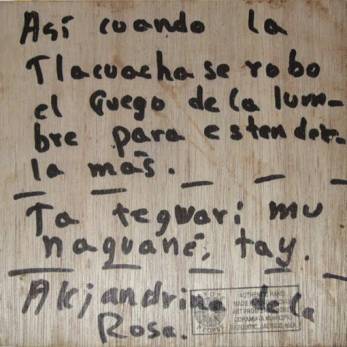 Así cuando la
Tlacuacha se robo
el Guego de la lum-
bre para estender-
la mas.
Ta tegwari mu
naguané, tay.
Alejandrino de la
Rosa.